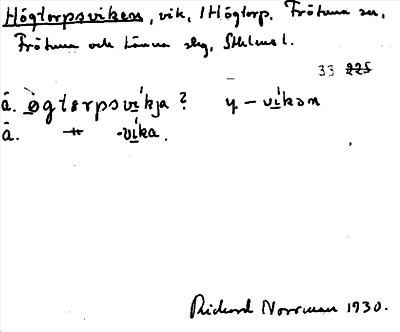 Högtorpsviken, vik, i Högtorp. Frötuna sn,
Frötuna och Länna skg, Sthlms l.
33 225
â. øgtɷrpsvíkja? y. – vikən
â. –"– -víka.
Richard Norrman 1930.